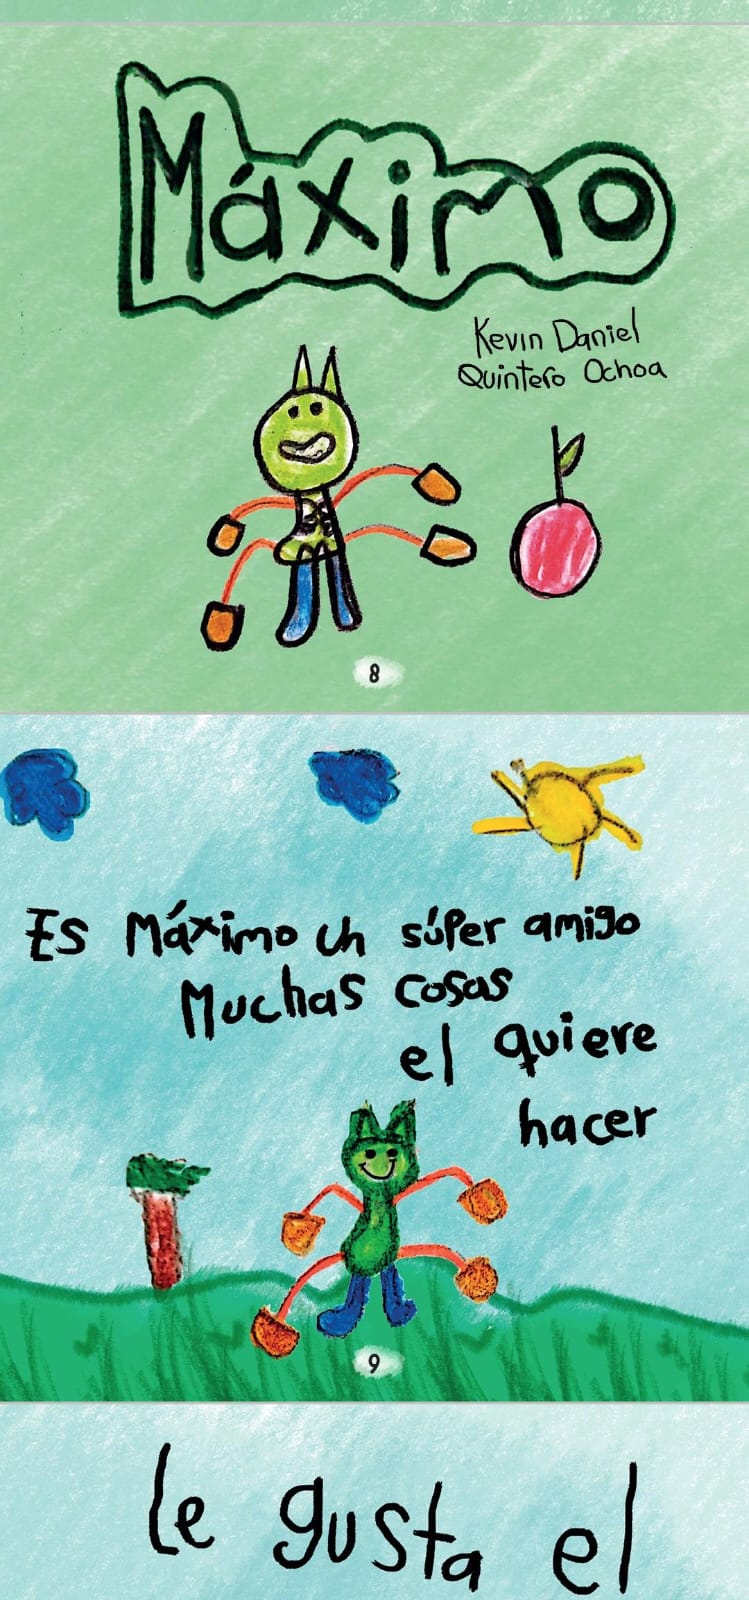 Máximo
Kevin Daniel
Quintero Ochoa
8
Es Máximo un súper amigo
Muchas cosas
el quiere
hacer
9
le gusta el